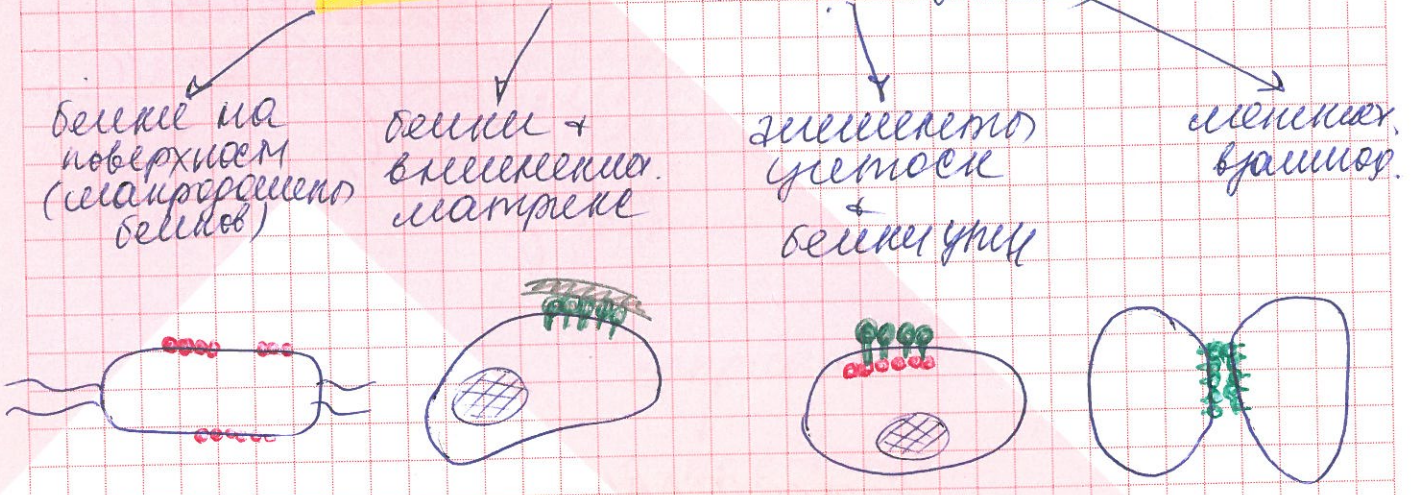 белки на
поверхност
(макродомены
белков)
белки +
внеклеточ.
матрикс
элементы
цитоск
+
белки цпм
межклет.
взаимод.